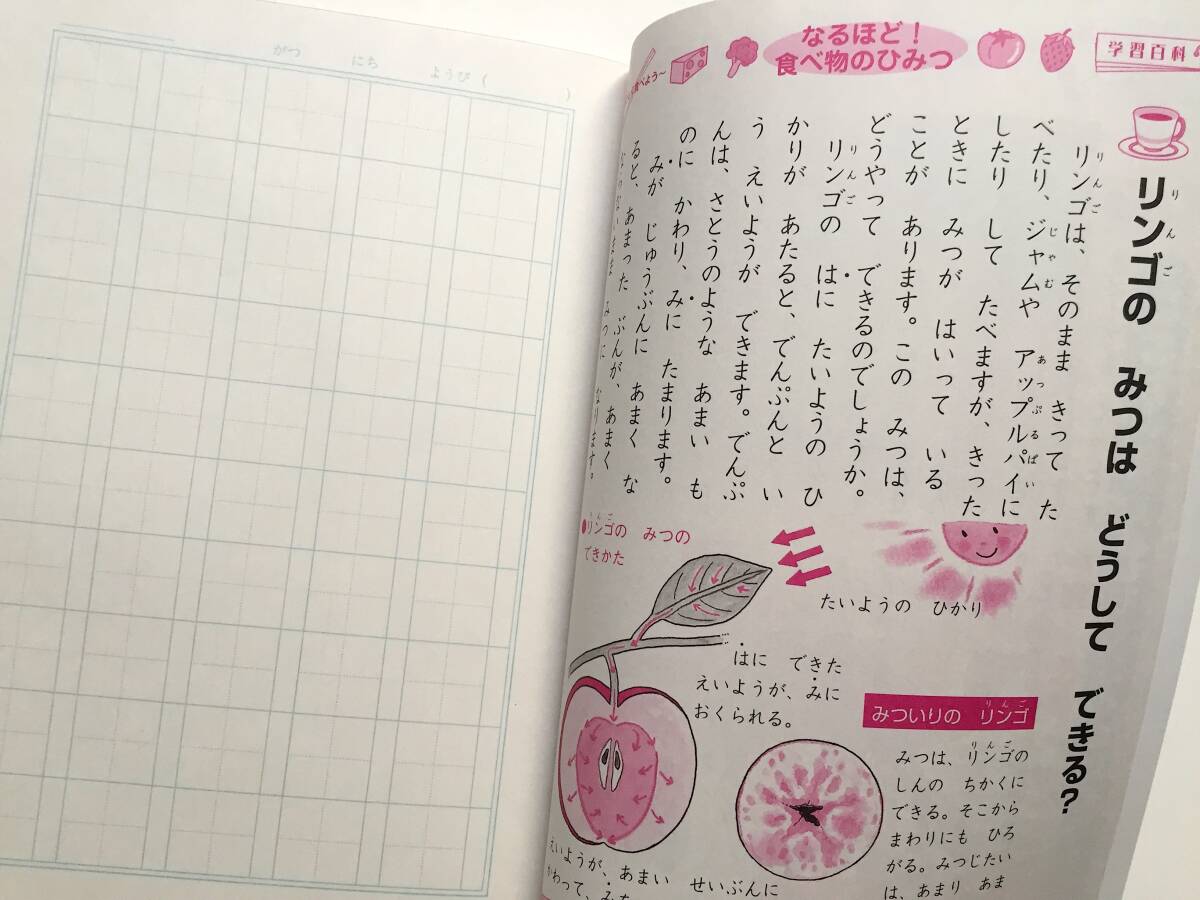 がつ にち ようび ( )
食べよう〜
なるほど!
食べ物のひみつ
学習百科
リンゴの みつは どうして できる?
りんご
リンゴは、そのまま きって た
べたり、ジャムや アップルパイに
じゃむ あっぷるぱい
したり して たべますが、きった
ときに みつが はいって いる
ことが あります。この みつは、
どうやって できるのでしょうか。
リンゴの はに たいようの ひ
りんご
かりが あたると、でんぷんと い
う えいようが できます。でんぷ
んは、さとうのような あまい も
のに かわり、みに たまります。
みが じゅうぶんに あまく な
ると、あまった ぶんが、あまく
みつに なります。
●リンゴの みつの
りんご
できかた
たいようの ひかり
はに できた
えいようが、みに
おくられる。
えいようが、あまい せいぶんに
かわって、み
みついりの リンゴ
りんご
みつは、リンゴの
りんご
しんの ちかくに
できる。そこから
まわりにも ひろ
がる。みつじたい
は、あまり あま